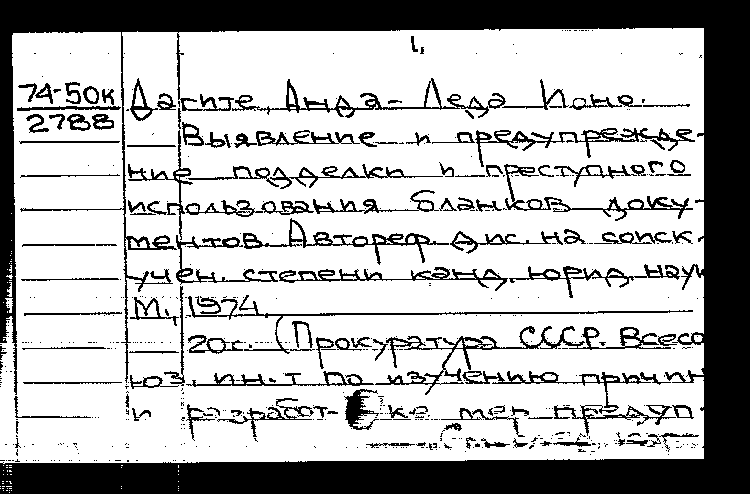 1.
74-50к
2788
Дагите, Анда-Леда Ионо.
Выявление и предупрежде-
ние подделки и преступного
использования бланков доку-
ментов. Автореф. дис. на соиск.
учен. степени канд. юрид. наук
М., 1974.
20с. (Прокуратура СССР. Всесо
юз. ин-т по изучению причин
и разработ- ке мер предуп-